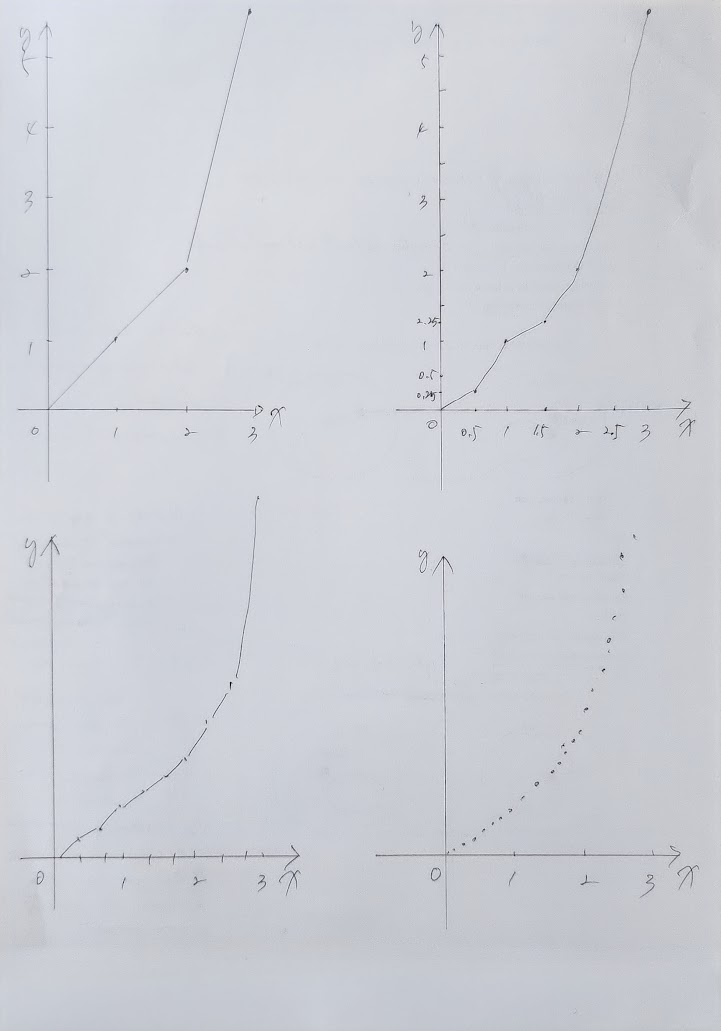 y
5
4
3
2
1
0 1 2 3 x
y
5
4
3
2
2.25
1
0.5
0.25
0 0.5 1 1.5 2 2.5 3 x
y
0 1 2 3 x
y
0 1 2 3 x